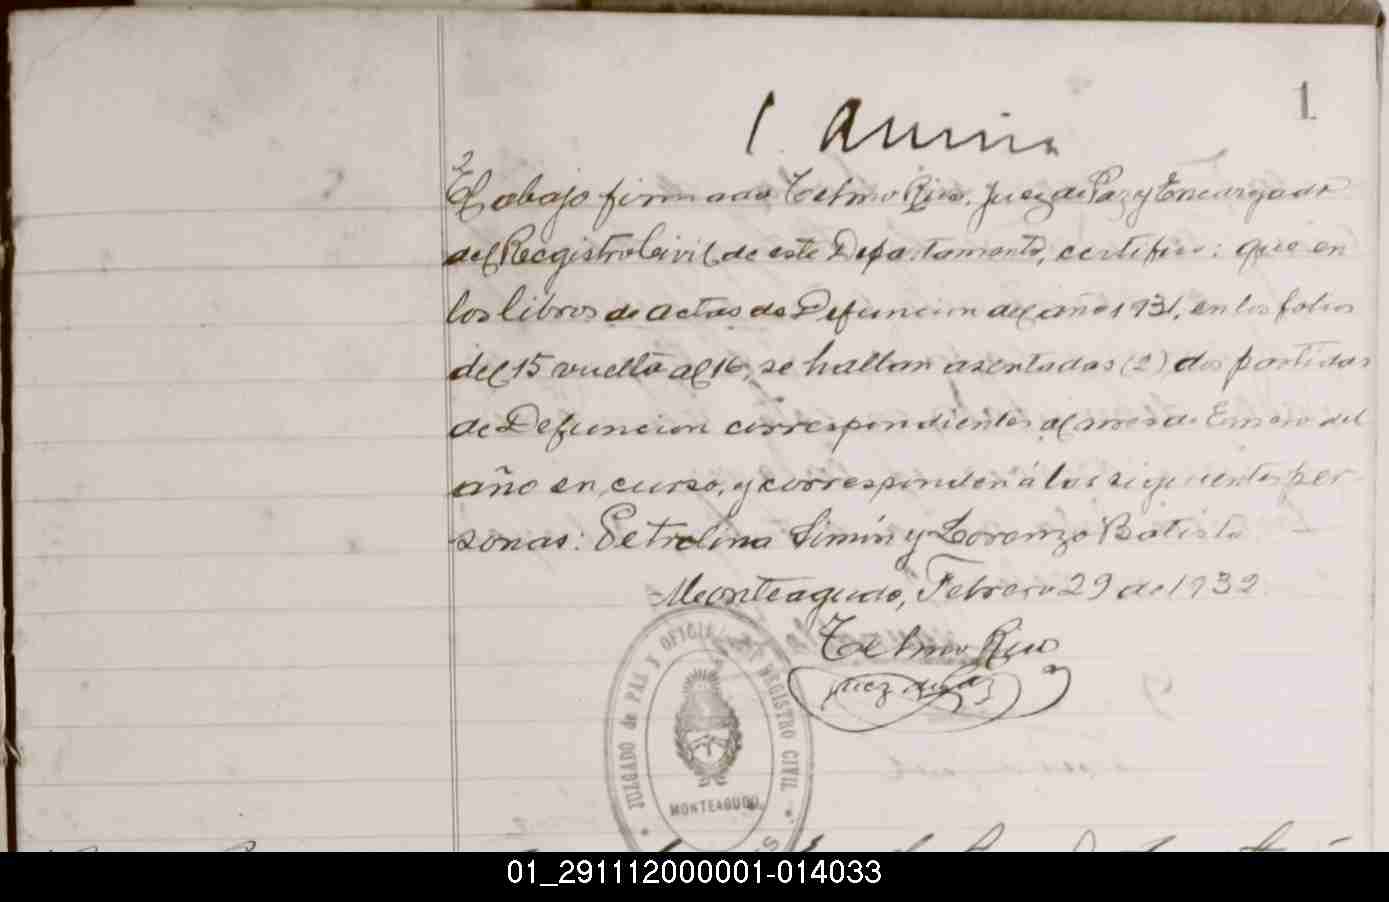 1
2
El abajo firmado Telmo Rizo, Juez de Paz y Encargado
del Recgistro Civil de este Departamento, certifico: que en
los libros de actas de Defuncion del año 1931, en los folios
del 15 vuelto al 16, se hallan asentadas (2) dos partidas
de Defuncion correspondientes al mes de Enero del
año en curso, y corresponden á las siguientes per-
sonas: Petrolina Simón y Lorenzo Batista
Monteagudo, Febrero 29 de 1932
Telmo Rizo
Juez de Paz
JUZGADO de PAZ Y OFICI REGISTRO CIVIL
MONTEAGUDO
01_291112000001-014033